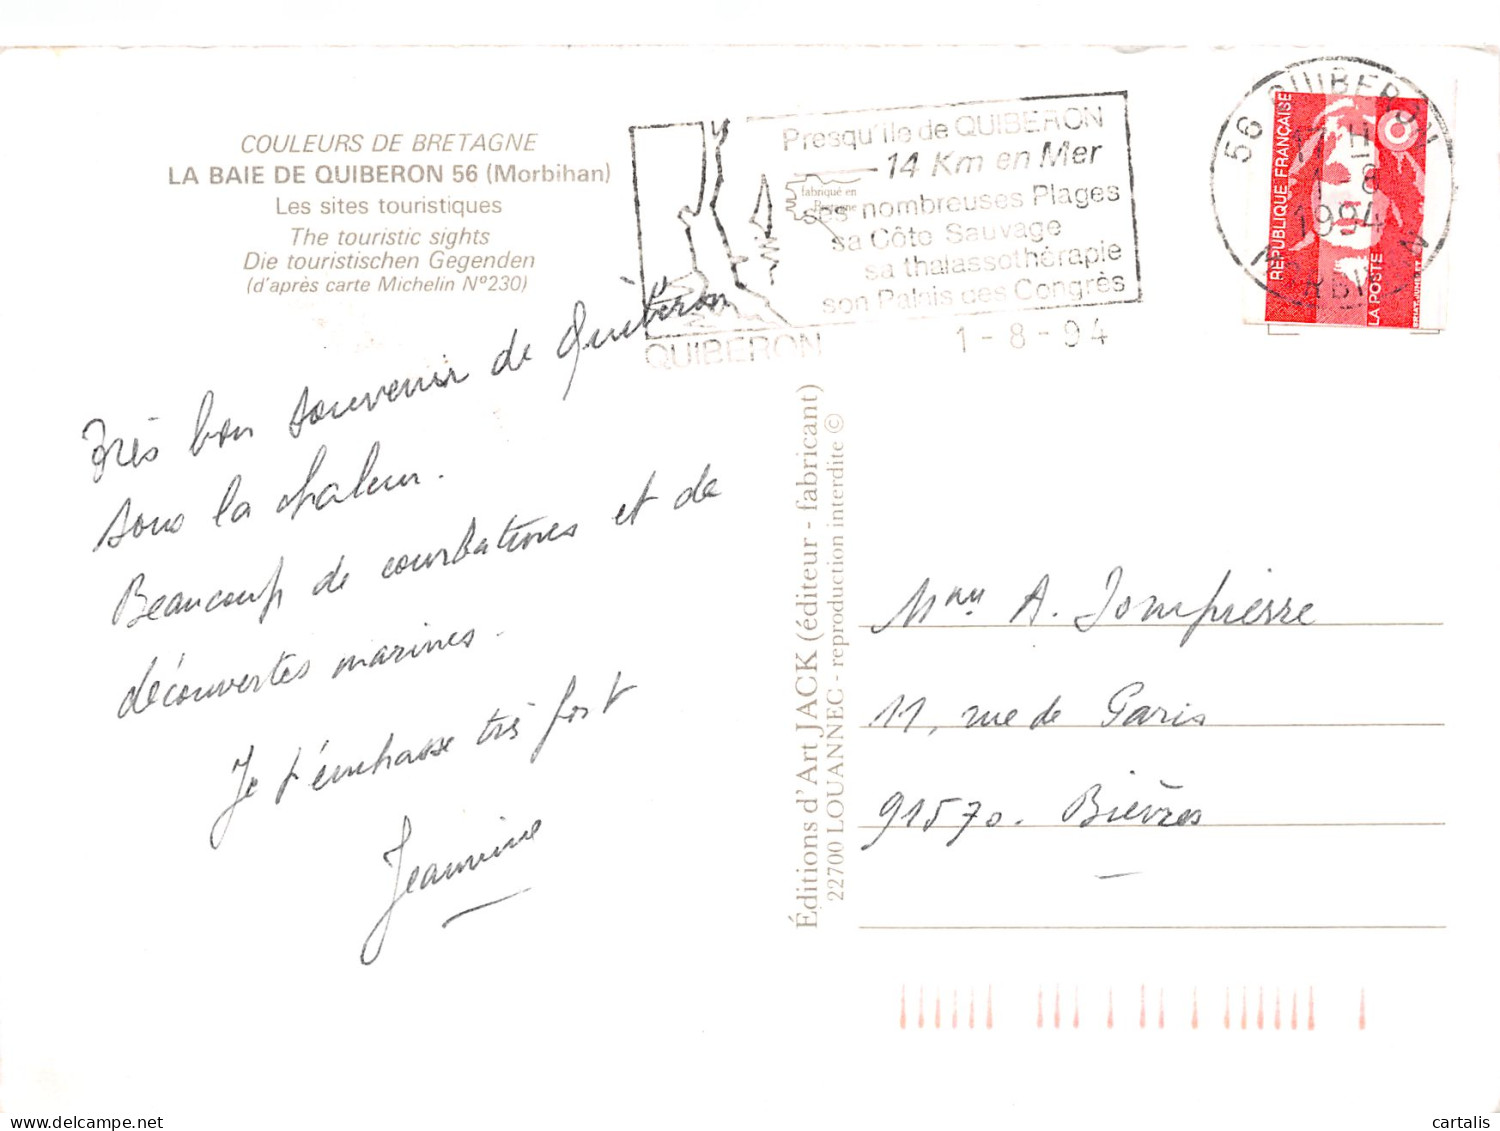 COULEURS DE BRETAGNE
LA BAIE DE QUIBERON 56 (Morbihan)
Les sites touristiques
The touristic sights
Die touristischen Gegenden
(d'après carte Michelin N°230)
Très bon souvenir de Quibéron
sous la chaleur.
Beaucoup de courbatures et de
découvertes marines.
Je t'embrasse très fort
Jeannine
QUIBERON
Presqu'île de QUIBERON
14 Km en Mer
ses nombreuses Plages
sa Côte Sauvage
sa thalassothérapie
son Palais des Congrès
1-8-94
fabriqué en
Bretagne
56 QUIBERON
1-8
1994
MORBIHAN
REPUBLIQUE FRANÇAISE
LA POSTE
Éditions d'Art JACK (éditeur - fabricant)
22700 LOUANNEC - reproduction interdite ©
A. Jompierre
11, rue de Paris
91570. Bièvres
cartalis